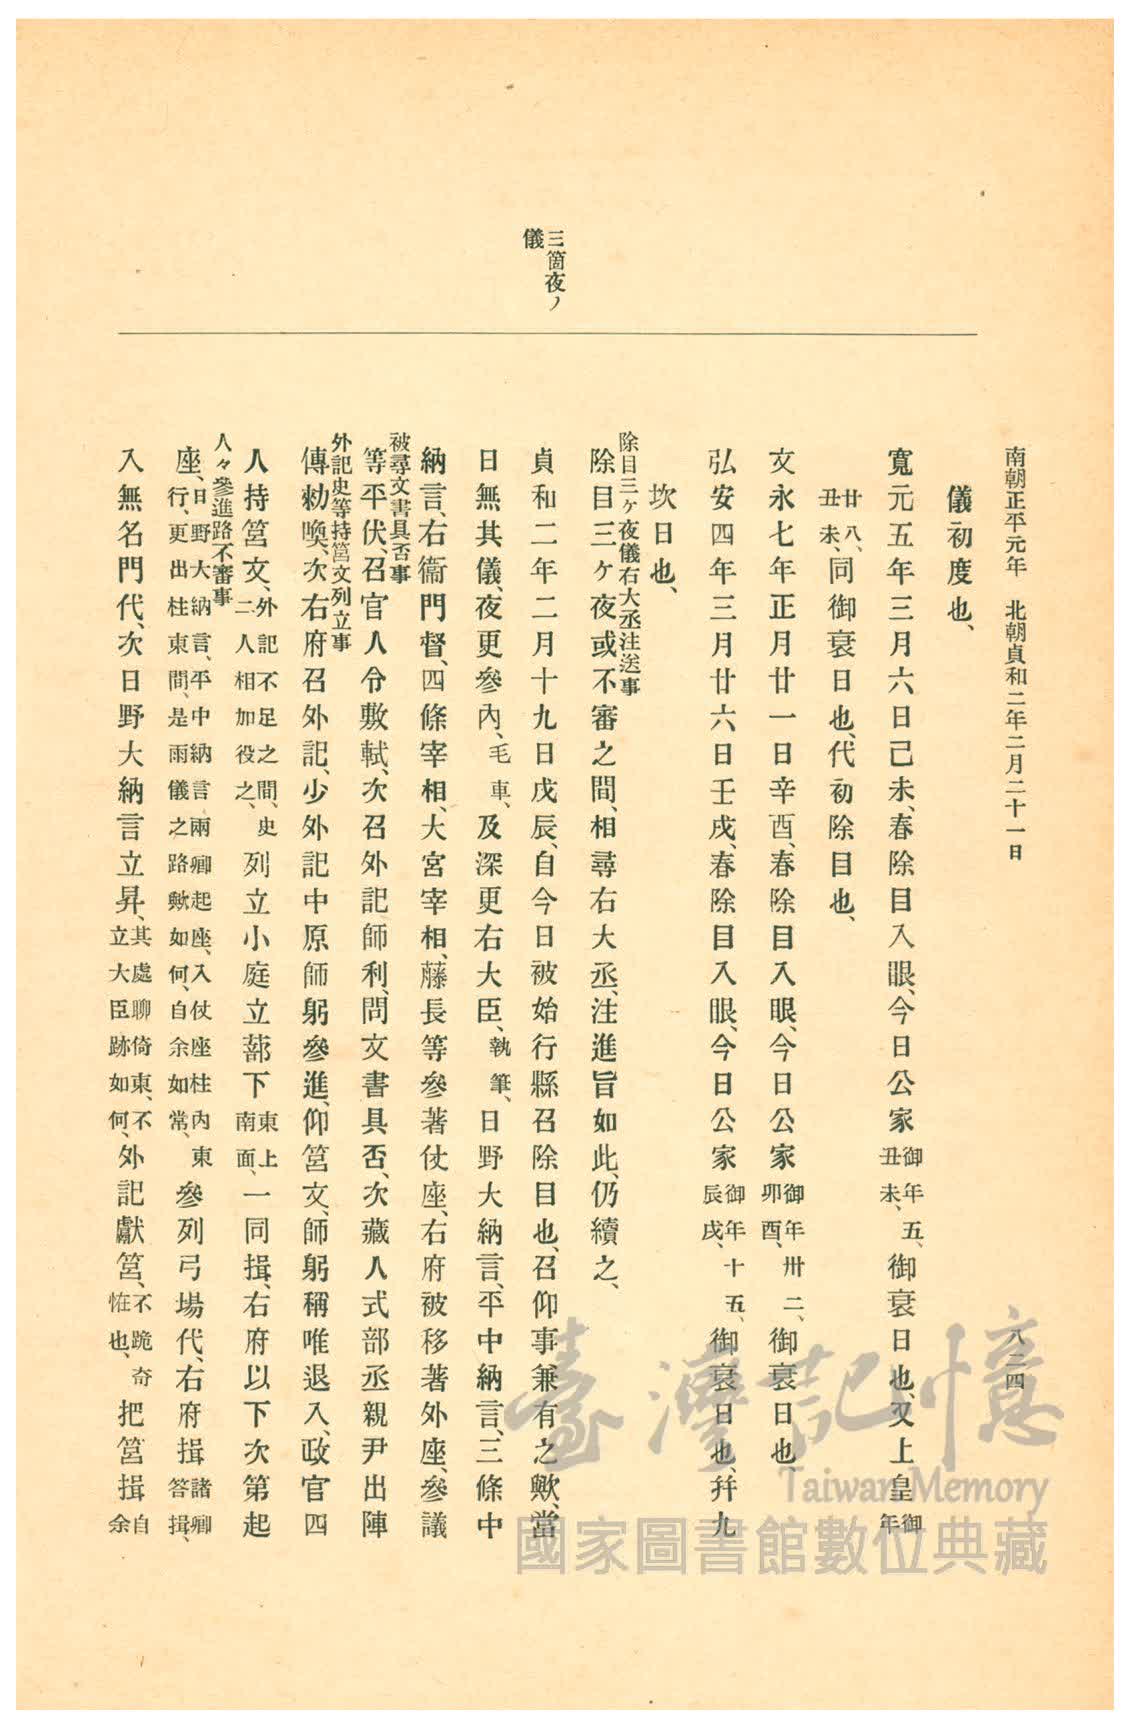 南朝正平元年　北朝貞和二年二月二十一日
八二四
三箇夜ノ
儀
儀初度也、
寬元五年三月六日己未、春除目入眼、今日公家御年五、丑未、御衰日也、又上皇御年
廿八、丑未、同御衰日也、代初除目也、
文永七年正月廿一日辛酉、春除目入眼、今日公家御年卅二、卯酉、御衰日也、
弘安四年三月廿六日壬戌、春除目入眼、今日公家御年十五、辰戌、御衰日也、幷九
坎日也、
除目三ヶ夜儀右大丞注送事
除目三ヶ夜或不審之間、相尋右大丞、注進旨如此、仍續之、
貞和二年二月十九日戊辰、自今日被始行縣召除目也、召仰事兼有之歟、當
日無其儀、夜更參內、毛車、及深更右大臣、執筆、日野大納言、平中納言、三條中
納言、右衞門督、四條宰相、大宮宰相、藤長等參著仗座、右府被移著外座、參議
被尋文書具否事
等平伏、召官人令敷軾、次召外記師利、問文書具否、次藏人式部丞親尹出陣
外記史等持筥文列立事
傳勅喚、次右府召外記、少外記中原師躬參進、仰筥文、師躬稱唯退入、政官四
人持筥文、外記不足之間、史二人相加役之、列立小庭立蔀下東上南面、一同揖、右府以下次第起
人々參進路不審事
座、日野大納言、平中納言兩卿起座、入仗座柱內東行、更出柱東間、是雨儀之路歟如何、自余如常、參列弓場代、右府揖諸卿答揖、
入無名門代、次日野大納言立昇、其處聊倚東、不立大臣跡如何、外記獻筥、不跪奇恠也、把筥揖自余
臺灣記憶
Taiwan Memory
國家圖書館數位典藏